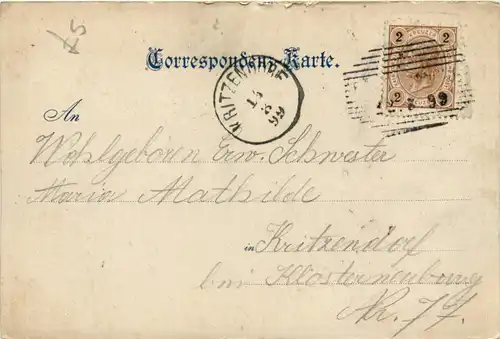 Correspondenz-Karte.
2 2
2 2
99
KRITZENDORF
8
99
An
Wohlgeboren Erw. Schwester
Maria Mathilde
in Kritzendorf
bei Klosterneuburg
Nr. 74